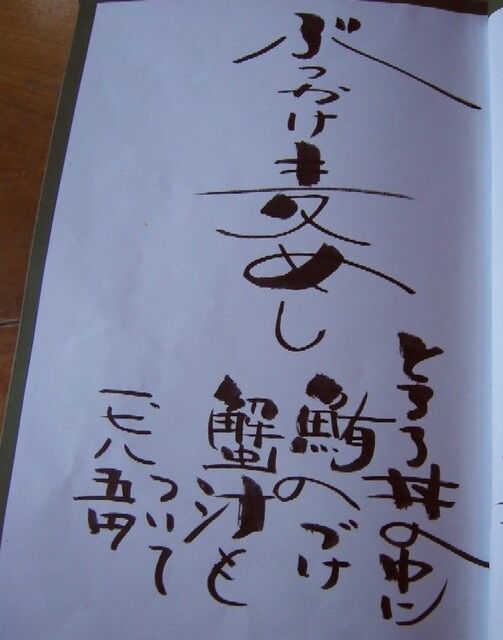 ぶっかけ麦めし
とろろ丼の中に
鮪のづけ
蟹汁も
ついて
一七八五円